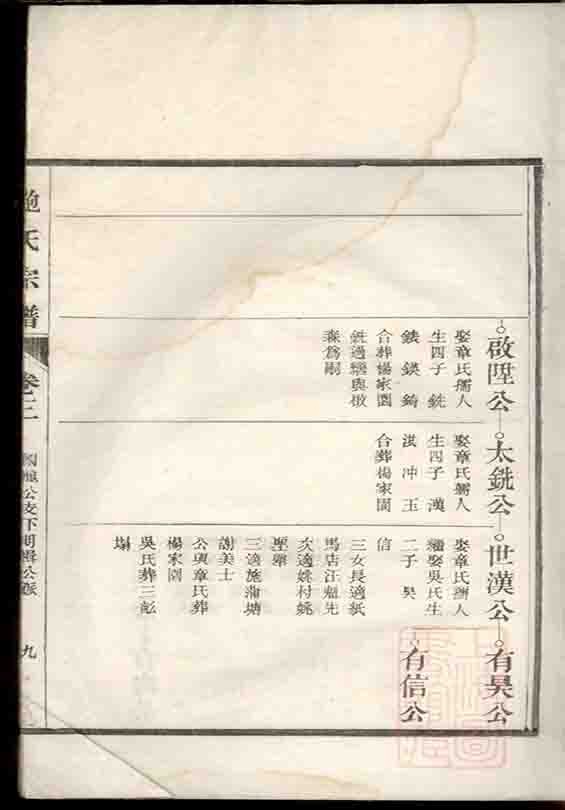 啟陞公
娶章氏孺人
生四子 銑
錂 鍈 錡
合葬楊家園
銑過繼與傚
森為嗣
太銑公
娶章氏孺人
生四子 漢
洪 冲 玉
合葬楊家園
世漢公
娶章氏孺人
繼娶吳氏生
二子 昊
信
三女長適紙
馬店汪魁先
次適姚村姚
聖舉
三適施蒲塘
謝美士
公與章氏葬
楊家園
吳氏葬三彪
塌
有昊公
有信公
鮑氏宗譜
卷十二
公支下明輯公派
九